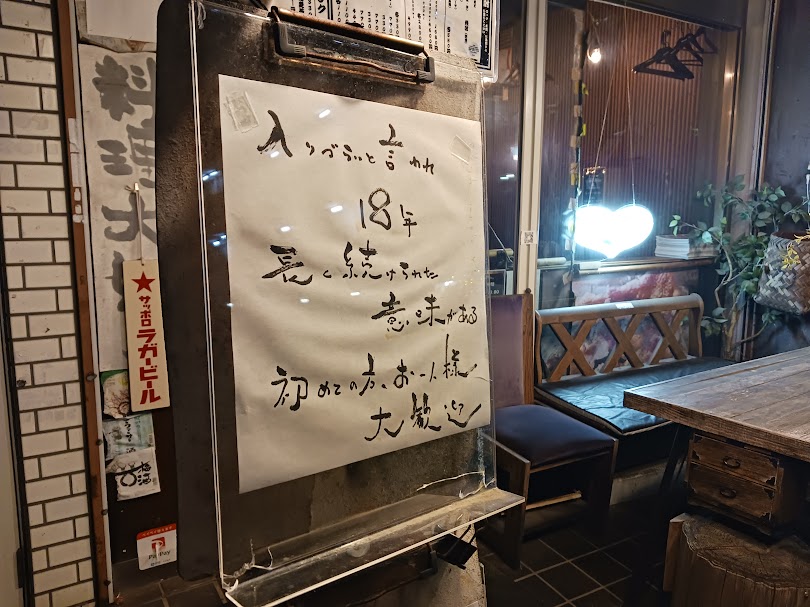 入りづらいと言われ
18年
長く続けられた
意味がある
初めての方、お一人様
大歓迎
料理
★サッポロラガービール
梅酒
PayPay